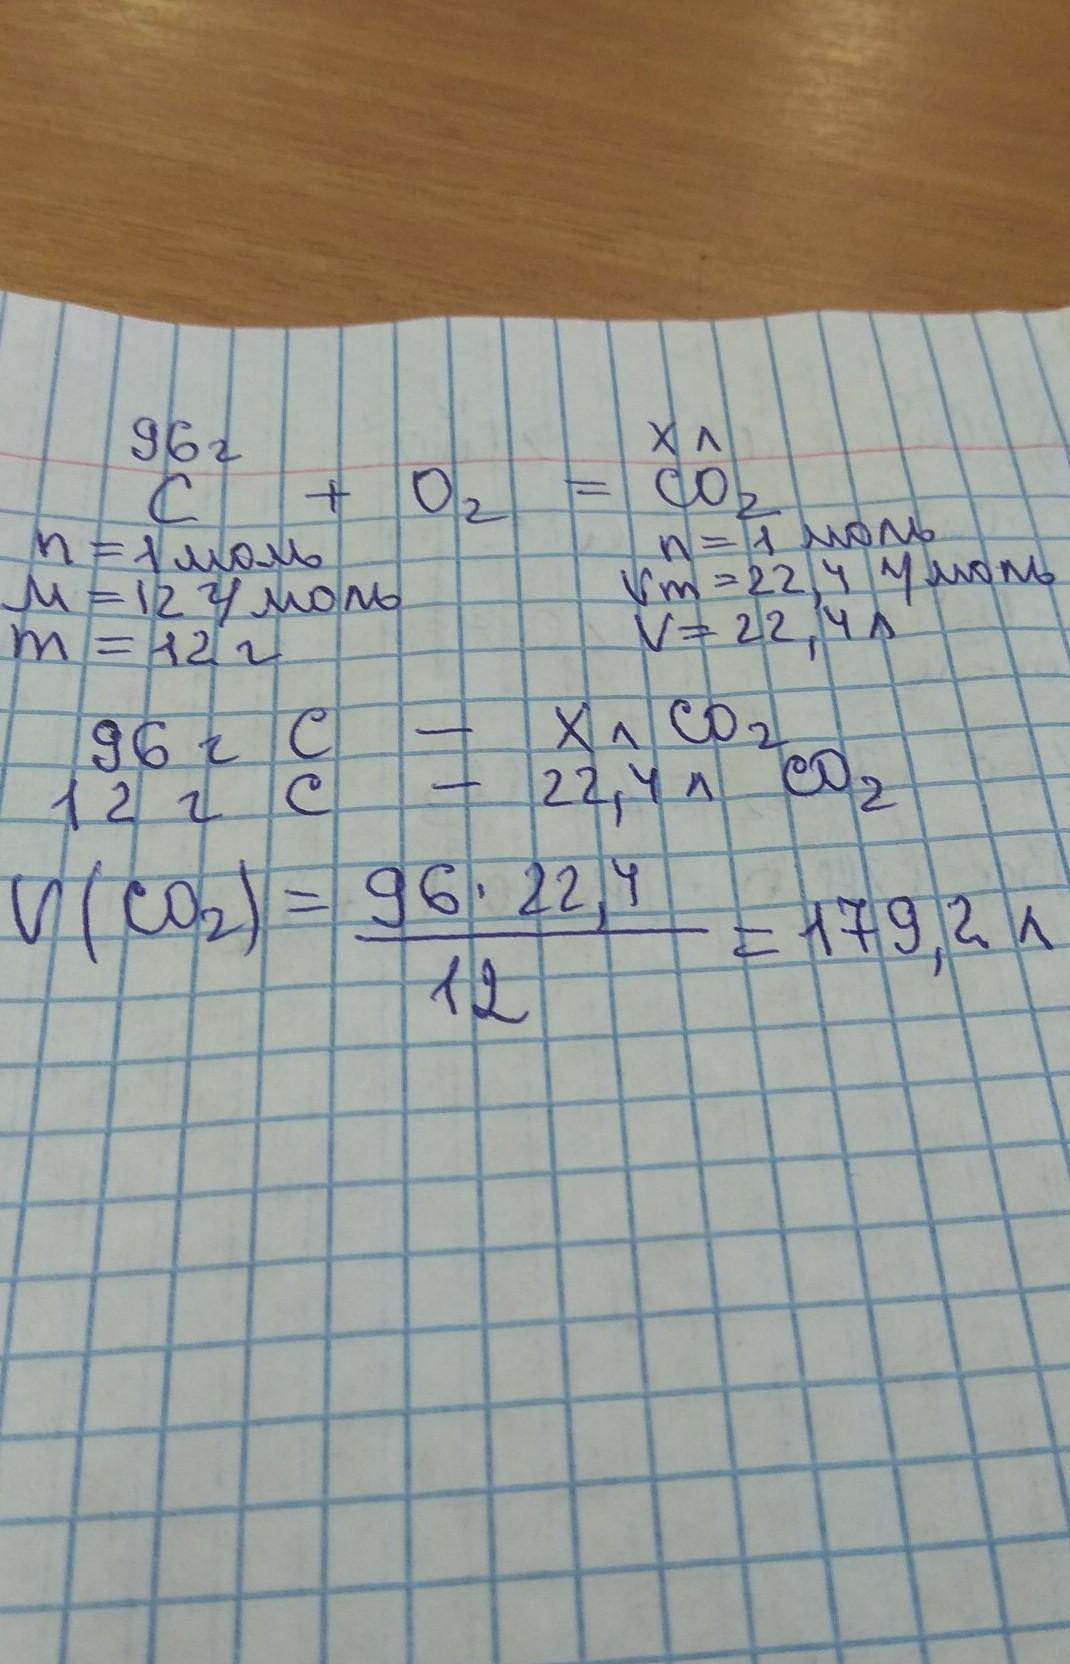 96 г х л
C + O₂ = CO₂
n = 1 моль n = 1 моль
M = 12 г/моль Vm = 22,4 л/моль
m = 12 г V = 22,4 л
96 г C – х л CO₂
12 г C – 22,4 л CO₂
V(CO₂) = 96 · 22,4 / 12 = 179,2 л